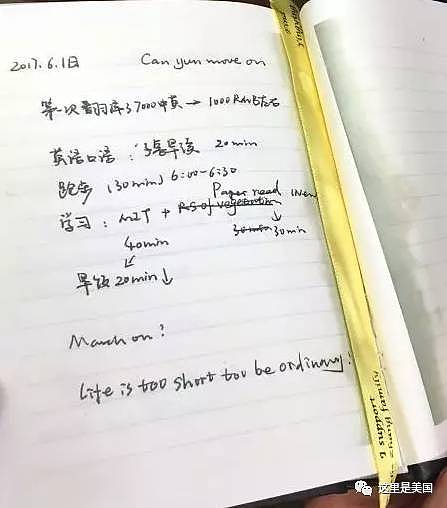 2017.6.1日 Can yun move on
第一次 7000中英 → 1000 RMB左右
英语口语: 早读 20min
跑步 (30min) 6:00-6:30
Paper read
学习: + RS of vegetation
40min 30min 30min
早饭 20min ↓
March on!
Life is too short too be ordinary!
& support
这里是美国